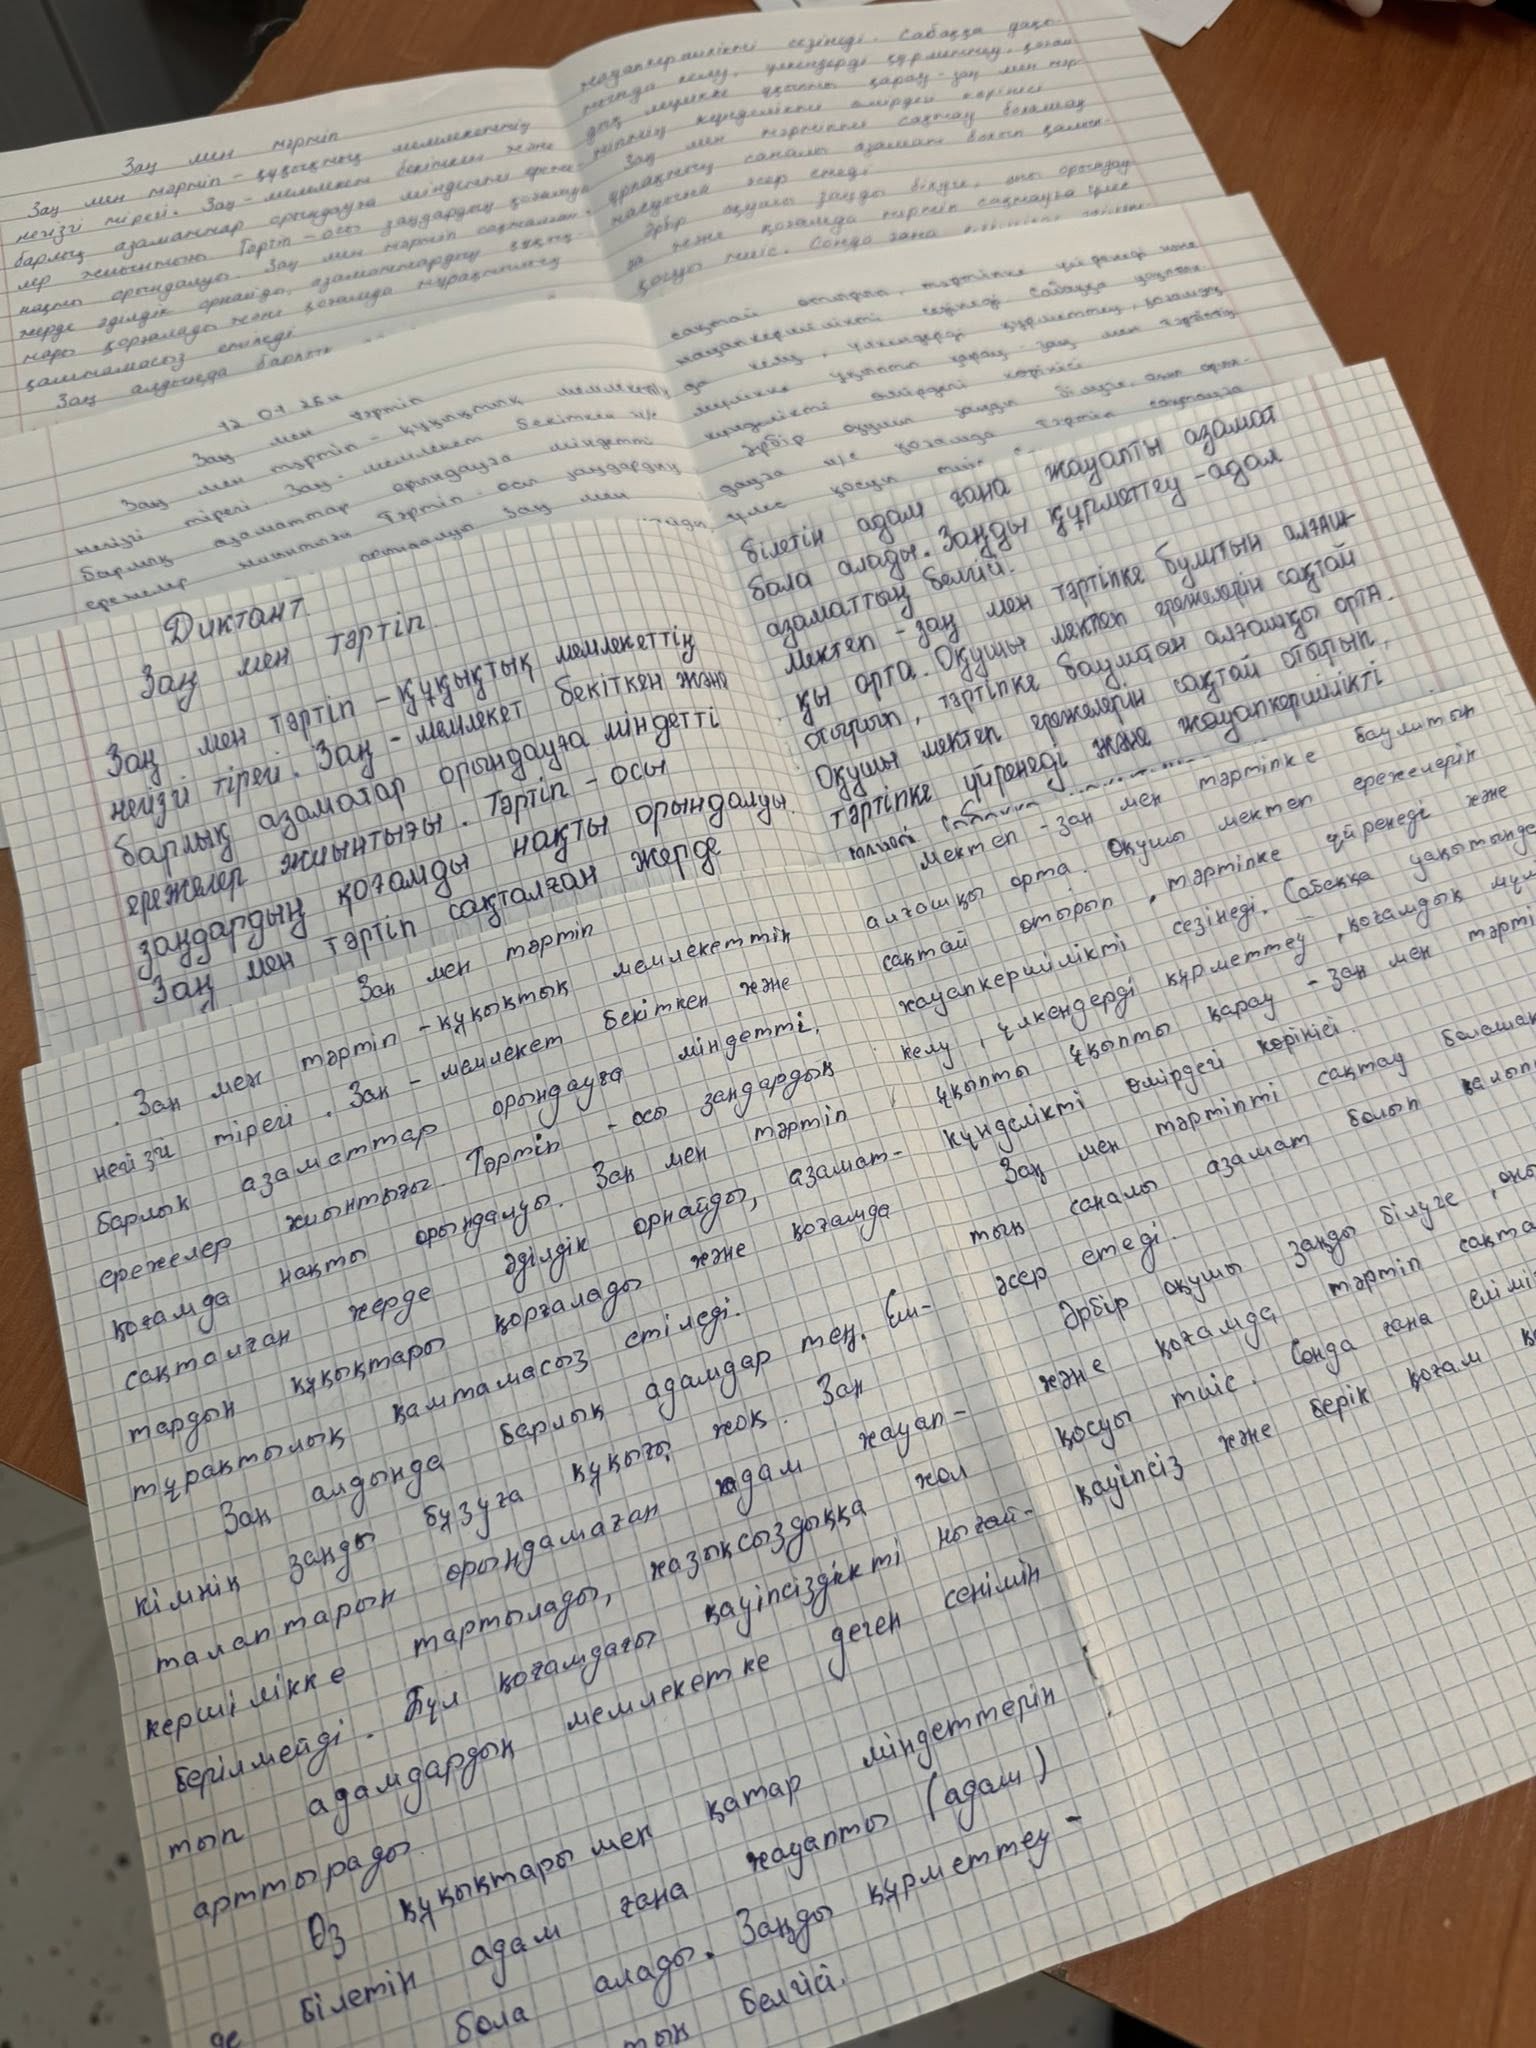 Заң мен тәртіп
Заң мен тәртіп - құқықтық мемлекеттің
негізгі тірегі. Заң - мемлекет бекіткен және
барлық азаматтар орындауға міндетті ереже-
лер жиынтығы. Тәртіп - осы заңдардың қоғамда
нақты орындалуы. Заң мен тәртіп сақталған
жерде әділдік орнайды, азаматтардың құқық-
тары қорғалады және қоғамда тұрақтылық
қамтамасыз етіледі
Заң алдында барлық
жауапкершілікті сезінеді. Сабаққа уақы-
тында келу, үлкендерді құрметтеу, қоғам
дық мүлікке ұқыпты қарау - заң мен тәр-
тіптің күнделікті өмірдегі көрінісі
Заң мен тәртіпті сақтау болашақ
ұрпақтың саналы азамат болып қалып-
тасуына әсер етеді
Әрбір оқушы заңды білуге, оны орындау
ға және қоғамда тәртіп сақтауға үлес
қосуы тиіс. Сонда ғана
12 01 26
Заң мен тәртіп
Заң мен тәртіп - құқықтық мемлекеттің
негізгі тірегі Заң - мемлекет бекіткен ж/е
барлық азаматтар орындауға міндетті
ережелер жиынтығы Тәртіп - осы заңдардың
орындалуы Заң мен
сақтай отырып, тәртіпке үйренеді және
жауапкершілікті сезінеді Сабаққа уақытын
да келу, үлкендерді құрметтеу, қоғамдық
мүлікке ұқыпты қарау - заң мен тәртіптің
күнделікті өмірдегі көрінісі
Әрбір оқушы заңды білуге, оны орын-
дауға ж/е қоғамда тәртіп сақтауға
үлес қосуы тиіс
Диктант.
Заң мен тәртіп.
Заң мен тәртіп - құқықтық мемлекеттің
негізгі тірегі. Заң - мемлекет бекіткен және
барлық азаматар орындауға міндетті
ережелер жиынтығы. Тәртіп - осы
заңдардың қоғамды нақты орындалуы.
Заң мен тәртіп сақталған жерде
білетін адам ғана жауапты азамат
бола алады. Заңды құрметтеу - адал
азаматтың белгісі.
Мектеп - заң мен тәртіпке булитын алғаш-
қы орта. Оқушы мектеп ережелерін сақтай
отырып, тәртіпке баулитан алғашқы орта.
Оқушы мектеп ережелерін сақтай отырып,
тәртіпке үйренеді және жауапкершілікті
Заң мен тәртіп
Заң мен тәртіп - құқықтық мемлекеттің
негізгі тірегі. Заң - мемлекет бекіткен және
барлық азаматтар орындауға міндетті,
ережелер жиынтығы. Тәртіп - осы заңдардың
қоғамда нақты орындалуы. Заң мен тәртіп
сақталған жерде әділдік орнайды, азамат-
тардың құқықтары қорғалады және қоғамда
тұрақтылық қамтамасыз етіледі.
Заң алдында барлық адамдар тең. Еш-
кімнің заңды бұзуға құқығы жоқ. Заң
талаптарын орындамаған адам жауап-
кершілікке тартылады, жазықсыздыққа жол
берілмейді. Бұл қоғамдағы қауіпсіздікті нығай-
тып адамдардың мемлекетке деген сенімін
арттырады.
Өз құқықтары мен қатар міндеттерін
де білетін адам ғана жауапты (адам)
бола алады. Заңды құрметтеу -
тың белгісі.
Мектеп - заң мен тәртіпке баулитын
алғашқы орта. Оқушы мектеп ережелерін
сақтай отырып, тәртіпке үйренеді және
жауапкершілікті сезінеді. Сабаққа уақытында
келу, үлкендерді құрметтеу, қоғамдық
ұқыпты ұқыпты қарау - заң мен
күнделікті өмірдегі көрінісі.
Заң мен тәртіпті сақтау
тың саналы азамат болып
әсер етеді.
Әрбір оқушы заңды білуге,
және қоғамда тәртіп
қосуы тиіс. Сонда ғана
қауіпсіз және берік қоғам